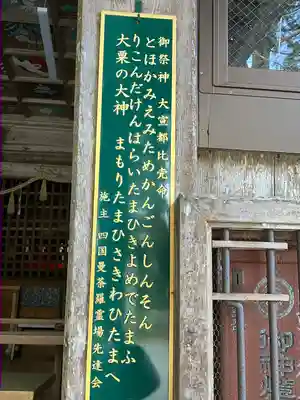 御祭神 大宜都比売命
とほかみえみためかんごんしんそん
りこんだけんはらいたまひきよめでたまふ
大粟の大神 まもりたまひさきわひたまへ
施主 四国曼荼羅霊場先達会
御神燈